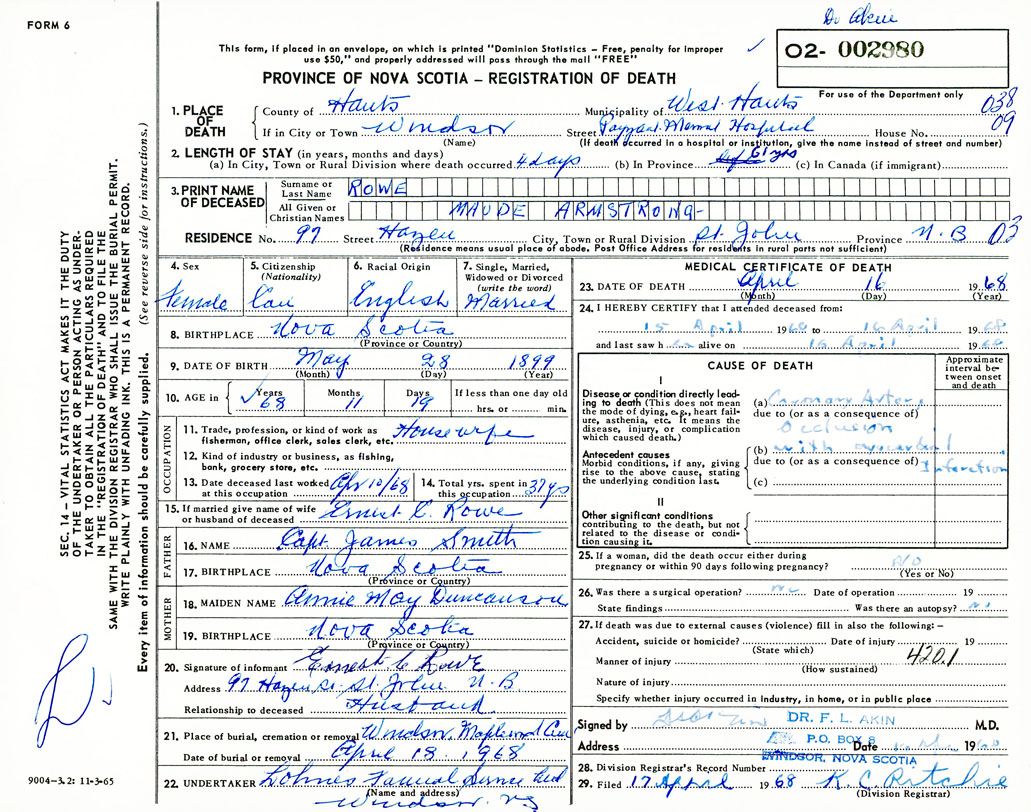 Dr Akin
FORM 6
This form, if placed in an envelope, on which is printed "Dominion Statistics – Free, penalty for improper
use $50," and properly addressed will pass through the mail "FREE"
✓
02- 002980
PROVINCE OF NOVA SCOTIA – REGISTRATION OF DEATH
For use of the Department only
1. PLACE OF DEATH
County of Hants Municipality of West Hants 038
If in City or Town Windsor Street Payzant Memorial Hospital House No. 09
(Name) (If death occurred in a hospital or institution, give the name instead of street and number)
2. LENGTH OF STAY (in years, months and days)
(a) In City, Town or Rural Division where death occurred 4 days (b) In Province 61 yrs (c) In Canada (if immigrant)
3. PRINT NAME OF DECEASED
Surname or Last Name ROWE
All Given or Christian Names MAUDE ARMSTRONG-
RESIDENCE No. 97 Street Hazen City, Town or Rural Division St. John Province N.B 03
(Residence means usual place of abode. Post Office Address for residents in rural parts not sufficient)
4. Sex Female
5. Citizenship (Nationality) Can
6. Racial Origin English
7. Single, Married, Widowed or Divorced (write the word) Married
8. BIRTHPLACE Nova Scotia
(Province or Country)
9. DATE OF BIRTH May 28 1899
(Month) (Day) (Year)
10. AGE in Years ✓ 68 Months 11 Days 19 If less than one day old
hrs. or min.
OCCUPATION
11. Trade, profession, or kind of work as Housewife
fisherman, office clerk, sales clerk, etc.
12. Kind of industry or business, as fishing,
bank, grocery store, etc.
13. Date deceased last worked at this occupation Apr 10/68
14. Total yrs. spent in this occupation 37 yrs
15. If married give name of wife or husband of deceased Ernest C. Rowe
FATHER
16. NAME Capt. James Smith
17. BIRTHPLACE Nova Scotia
(Province or Country)
MOTHER
18. MAIDEN NAME Annie May Duncanson
19. BIRTHPLACE Nova Scotia
(Province or Country)
20. Signature of informant Ernest C Rowe
Address 97 Hazen St. St. John N.B.
Relationship to deceased Husband
21. Place of burial, cremation or removal Windsor, Maplewood Cem
Date of burial or removal April 18, 1968
22. UNDERTAKER Lohnes Funeral Service Ltd
(Name and address)
Windsor NS
MEDICAL CERTIFICATE OF DEATH
23. DATE OF DEATH April 16 1968
(Month) (Day) (Year)
24. I HEREBY CERTIFY that I attended deceased from:
15 April 1968 to 16 April 1968
and last saw h alive on 16 April 1968
CAUSE OF DEATH
Approximate interval between onset and death
I
Disease or condition directly leading to death (This does not mean the mode of dying, e.g., heart failure, asthenia, etc. It means the disease, injury, or complication which caused death.)
(a) Coronary Artery
due to (or as a consequence of)
Occlusion
Antecedent causes
Morbid conditions, if any, giving rise to the above cause, stating the underlying condition last.
(b) with myocardial
due to (or as a consequence of) Infarction
(c)
II
Other significant conditions
contributing to the death, but not related to the disease or condition causing it.
25. If a woman, did the death occur either during
pregnancy or within 90 days following pregnancy? NO
(Yes or No)
26. Was there a surgical operation? no Date of operation 19
State findings Was there an autopsy? No
27. If death was due to external causes (violence) fill in also the following: –
Accident, suicide or homicide? Date of injury 19
(State which)
Manner of injury 420.1
(How sustained)
Nature of injury
Specify whether injury occurred in industry, in home, or in public place
Signed by DR. F. L. AKIN M.D.
Address P.O. BOX 8 Date 19
WINDSOR, NOVA SCOTIA
28. Division Registrar's Record Number
29. Filed 17 April 1968 K. C. Ritchie
(Division Registrar)
SEC. 14 – VITAL STATISTICS ACT MAKES IT THE DUTY
OF THE UNDERTAKER OR PERSON ACTING AS UNDER-
TAKER TO OBTAIN ALL THE PARTICULARS REQUIRED
IN THE "REGISTRATION OF DEATH" AND TO FILE THE
SAME WITH THE DIVISION REGISTRAR WHO SHALL ISSUE THE BURIAL PERMIT.
WRITE PLAINLY WITH UNFADING INK. THIS IS A PERMANENT RECORD.
Every item of information should be carefully supplied. (See reverse side for instructions.)
9004–3.2: 11-3-65